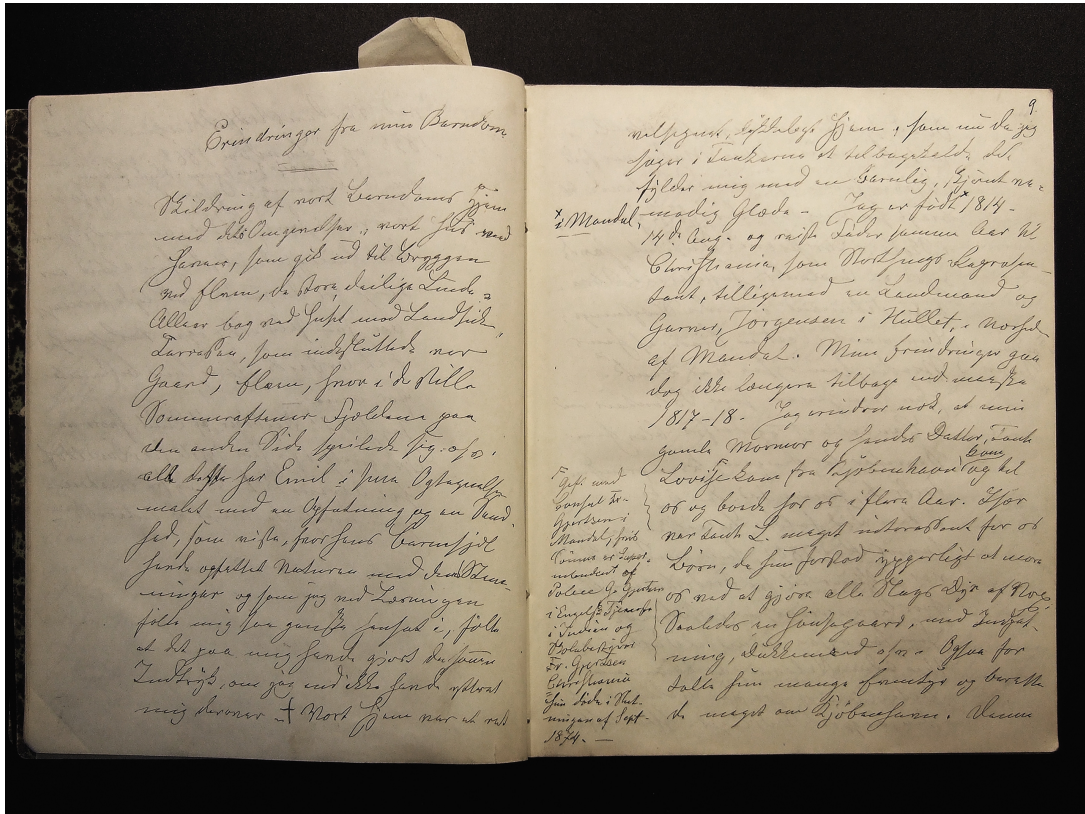 Erindringer fra min Barndom
Skildring af vort Barndoms Hjem
med dets Omgivelser, vort Huus ved
Havnen, som gik ud til Bryggen
ved Elven, de store, deilige Linde-
Alleer bag ved Huset med Landsiden,
Terrassen, som indesluttede vor
Gaard, Elven, hvor i de stille
Sommeraftener Fjeldene paa
den anden Side speilede sig. osv.
alt dette har Emil i sine Optegnelser
malet med en Opfatning og en Sand-
hed, som viste, hvor hans Barnesjæl
havde opfattet Naturen med dens Stem-
ninger og som jeg ved Læsningen
følte mig saa ganske hensat i, følte
at det paa mig havde gjort det samme
Indtryk, om jeg end ikke havde ytret
mig derover Vort Hjem var et ret
9.
velsignet, lykkeligt Hjem, som nu da jeg
søger i Tankerne at tilbagekalde det
fylder mig med en barnlig, skjønt ve-
modig Glæde - Jeg er født 1814 -
x i Mandal.
14de Aug. og reiste Fader samme Aar til
Christiania, som Storthings Repræsen-
tant, tilligemed en Landmand og
Garver, Jørgensen i Hullet, i Nærheden
af Mandal. Mine Erindringer gaa
dog ikke længere tilbage end maaske
1817-18. Jeg erindrer nok, at min
gamle Mormor og hendes Datter, Tante
Lovise kom fra Kjøbenhavn og
os og boede hos os i flere Aar. Især
var Tante L. meget interessant for os
Børn, da hun forstod ypperligt at more
os ved at gjøre alle Slags Dyr af Vox,
Saaledes en Hønsegaard, med Indfat-
ning, Dukkemænd osv. Ogsaa for-
talte hun mange Eventyr og berette-
de meget om Kjøbenhavn. Denne
Gift med
Consul Fr.
Gjertsen i
Mandal, hvis
Sønner er
af
i Engelsk Tjeneste
i Indien og
Fr. Gjertsen
Christiania
hun døde i Slut-
ningen af Sept.
1874. —